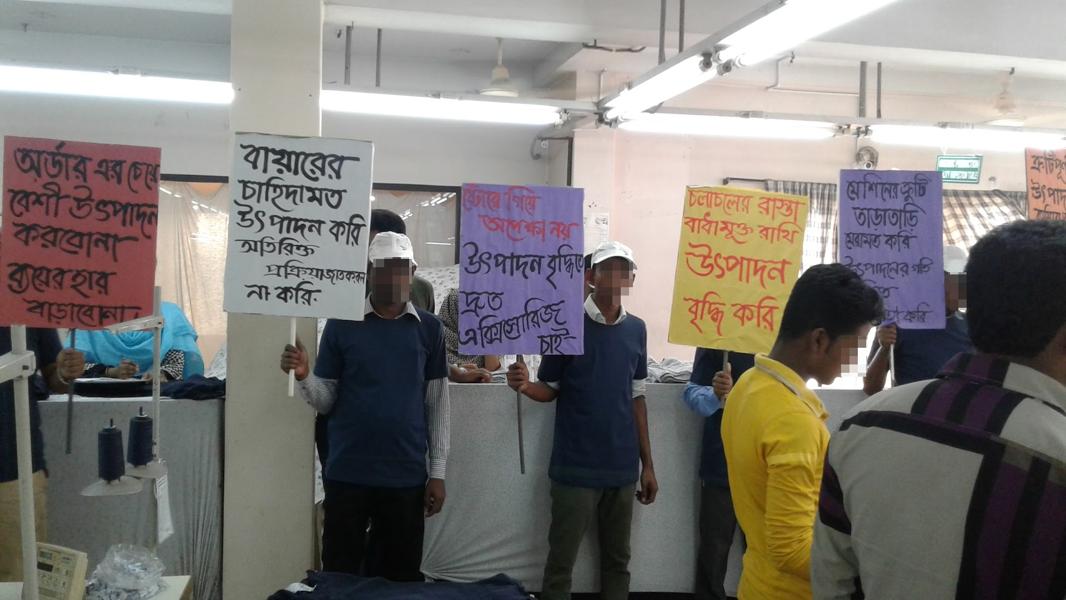 অর্ডার এর চেয়ে
বেশী উৎপাদন
করবোনা
ব্যয়ের হার
বাড়াবোনা।
বায়ারের
চাহিদামত
উৎপাদন করি
অতিরিক্ত
প্রক্রিয়াজাতকরন
না করি।
স্টোরে গিয়ে
অপেক্ষা নয়
উৎপাদন বৃদ্ধিতে
দ্রুত
এক্সিসোরিজ
চাই
চলাচলের রাস্তা
বাধাঁমুক্ত রাখি
উৎপাদন
বৃদ্ধি করি
মেশিনের ত্রুটি
তাড়াতাড়ি
মেরামত করি
উৎপাদনের গতি
করি
ত্রুটিপূ
উৎপাদ
QUALITY INSPECTION TABLE